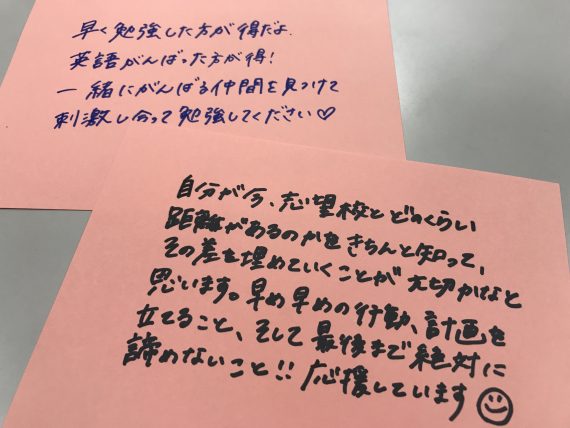 早く勉強した方が得だよ.
英語がんばった方が得!
一緒にがんばる仲間を見つけて
刺激し合って勉強してください♡
自分が今、志望校とどのくらい
距離があるのかをきちんと知って、
その差を埋めていくことが大切かなと
思います。早め早めの行動、計画を
立てること、そして最後まで絶対に
諦めないこと!! 応援しています☺